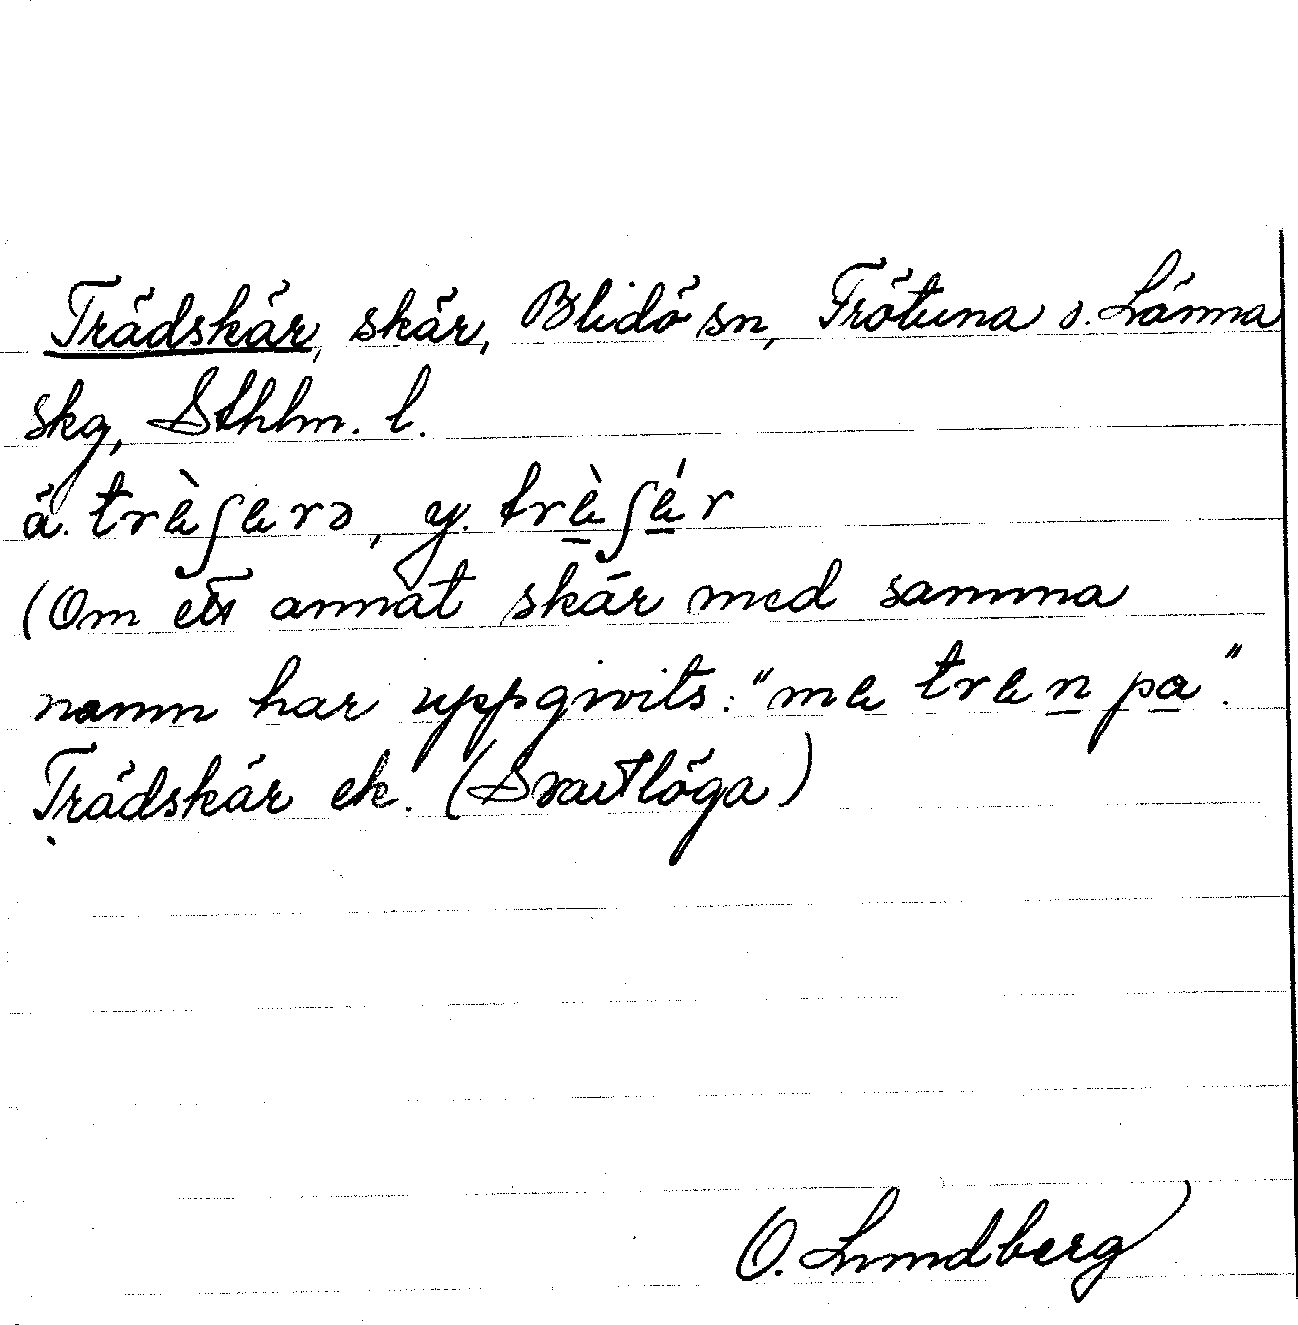 Trädskär, skär, Blidö sn, Frötuna o. Länna
skg, Sthlm. l.
ä. trὲʃɛrə, y. trὲʃɛ́r
(Om ett annat skär med samma
namn har uppgivits: "mɛ trɛn pɑ".
Trädskär ek. (Svartlöga)
O. Lundberg